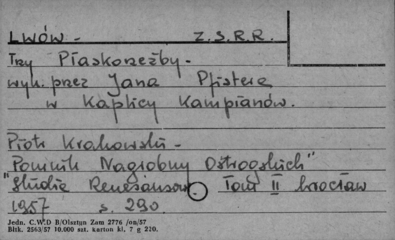 LWÓW - Z.S.R.R.
Trzy Płaskorzeźby -
wyk. przez Jana Pfistera
w Kaplicy Kampianów.
Piotr Krakowski -
Pomnik Nagrobny Ostrogskich"
"Studia Renesansowe Tom II Wrocław
1957 s. 290
Jedn. C.W.D B/Olsztyn Zam 2776 /on/57
Bltk. 2563/57 10.000 szt. karton kl. 7 g 220.